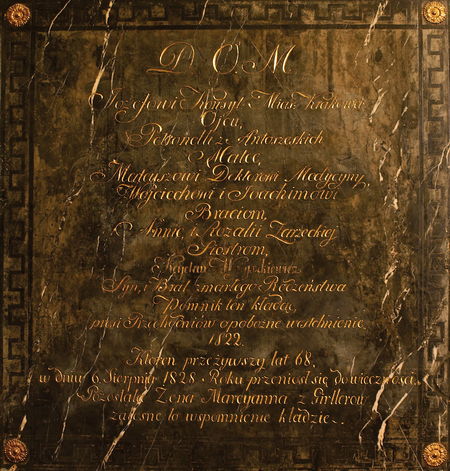 D. O. M.
Józefowi Konsyl: Mias: Krakowa
Ojcu,
Petronelli z Antoszeskich
Matce,
Mateuszowi Doktorowi Medycyny,
Woyciechowi i Joachimowi
Braciom,
Annie, i Rozalii Zarzeckiey
Siostrom,
Kajetan
Syn, i Brat zmarłego Rodzeństwa
Pomnik ten kładąc,
prosi Przechodniów o pobożne westchnienie
1822.
Któren przeżywszy lat 68.
w dniu 6. Sierpnia 1828 Roku przeniosł się do wieczności,
Pozostała Żona Maryanna z
żałosne to wspomnienie kładzie.